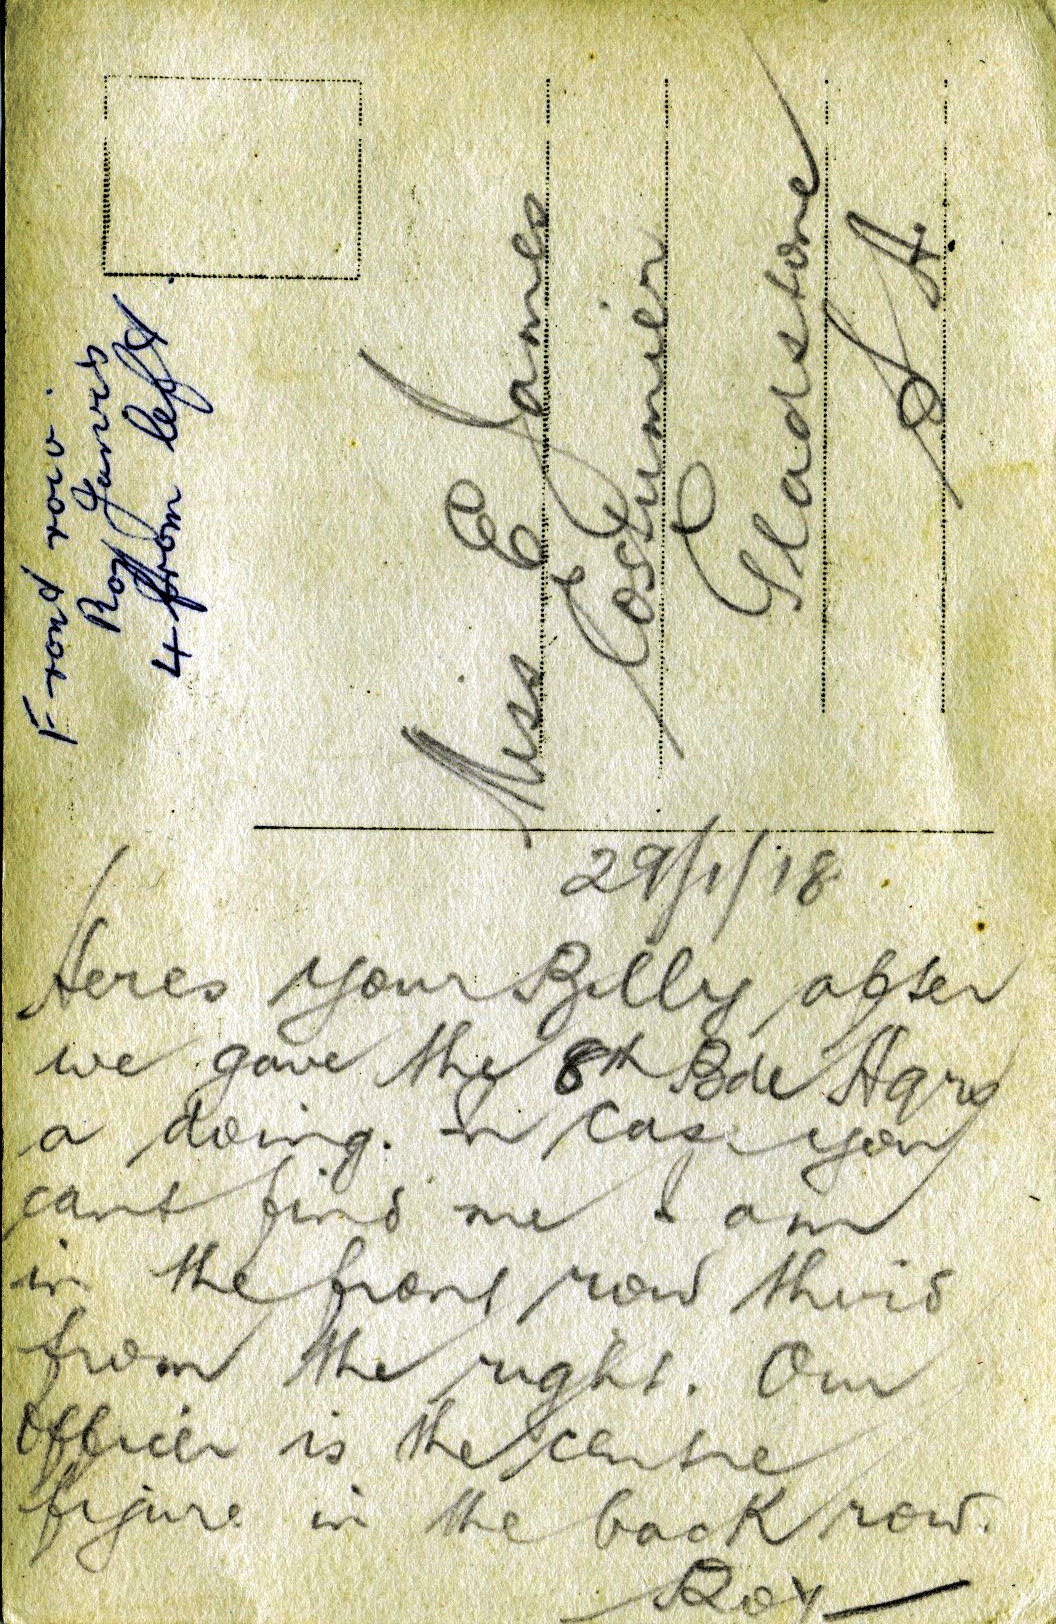 Front row.
Roy Jarvis
4 from left
Miss E James
Costumier
Gladstone
S A
29/1/18
Heres your Billy after
we gave the 8th Bde Hqrs
a doing. In case you
cant find me I am
in the front row third
from the right. Our
Officer is the centre
figure in the back row.
Roy